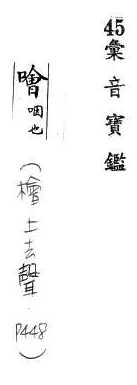 45彙音寶鑑
噲 咽也
(檜上去聲 P448)